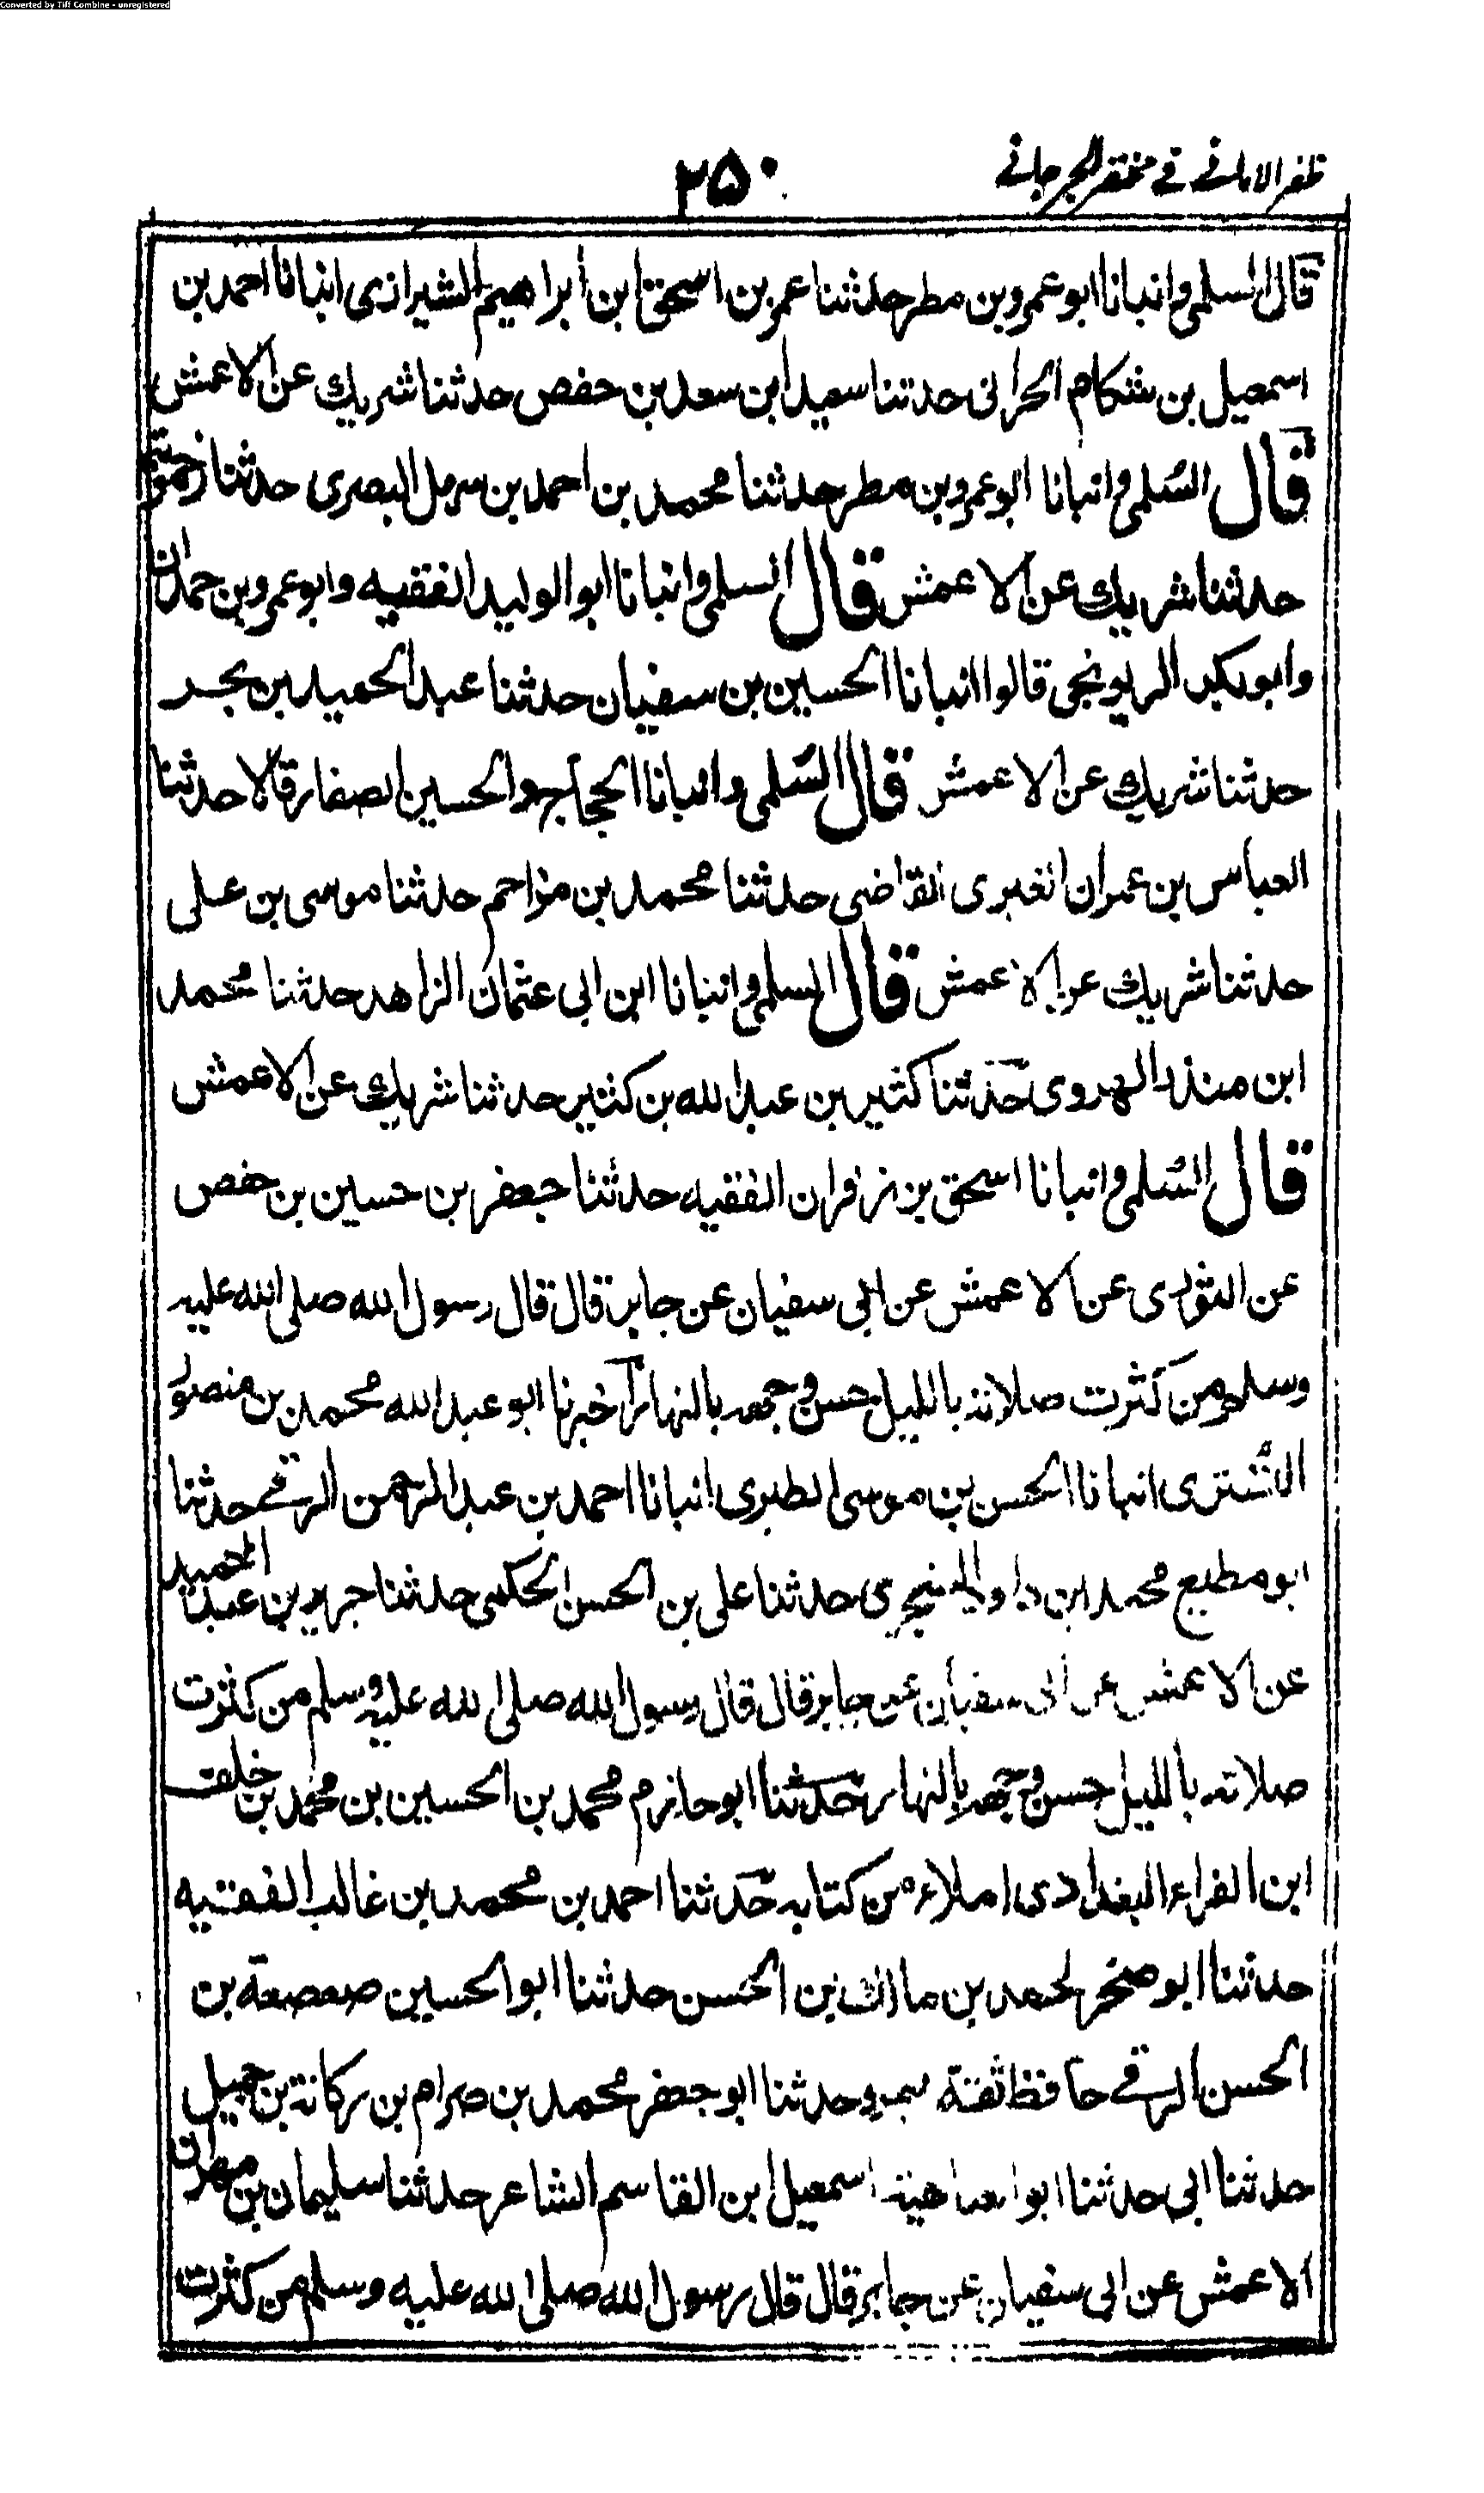 Converted by Tiff Combine - unregistered
ظفر الامانے فے مختصر الجرجانے
۲۵۰
قال السلمی وانبانا ابو عمرو بن مطر حدثنا عمر بن اسحق ابن ابراهیم الشیرازی انبانا احمد بن
اسمعیل بن شکام الحرانی حدثنا سعید ابن سعد بن حفص حدثنا شریك عن الاعمش
قال السلمی وانبانا ابو عمرو بن مطر حدثنا محمد بن احمد بن سهل البصری حدثنا زحمویہ
حدثنا شریك عن الاعمش قال السلمی وانبانا ابو الولید الفقیه وابو عمرو بن حمدان
وابوبکر الریونجی قالوا انبانا الحسین بن سفیان حدثنا عبد الحمید بن بحر
حدثنا شریك عن الاعمش قال السلمی وانبانا الحجاجی والحسین الصفار قالا حدثنا
العباس بن عمران القاضی حدثنا محمد بن مزاحم حدثنا موسی بن علی
حدثنا شریك عن الاعمش قال السلمی وانبانا ابن ابی عثمان الزاهد حدثنا محمد
ابن منذر الهروی حدثنا کثیر بن عبد الله بن کثیر حدثنا شریك عن الاعمش
قال السلمی وانبانا اسحق بن زفران الفقیه حدثنا جعفر بن حسین بن حفص
عن الثوری عن الاعمش عن ابی سفیان عن جابر قال قال رسول الله صلی الله علیه
وسلم ومن کثرت صلاته باللیل حسن وجهه بالنهار اخبرنا ابو عبد الله محمد بن منصور
التستری انبانا الحسن بن موسی الطبری انبانا احمد بن عبد الرحمن الرقے حدثنا
ابو مطیع محمد ابن داود السنجری حدثنا علی بن الحسن الحکمی حدثنا جریر بن عبد الحمید
عن الاعمش عن ابی سفیان عن جابر قال قال رسول الله صلی الله علیه وسلم من کثرت
صلاته باللیل حسن وجهه بالنهار حدثنا ابو حازم محمد بن الحسین بن محمد بن خلف
ابن الفراء البغدادی املاء من کتابه حدثنا احمد بن محمد بن غالب الفقیه
حدثنا ابو صخر محمد بن مالك بن الحسن حدثنا ابو الحسین صعصعة بن
الحسن الرقے حافظ ثقة بمرو حدثنا ابو جعفر محمد بن صرام بن رکانة بن جمیل
حدثنا ابی حدثنا ابو العتاهیة اسمعیل ابن القاسم الشاعر حدثنا سلیمان بن مهران
الاعمش عن ابی سفیان عن جابر قال قال رسول الله صلی الله علیه وسلم من کثرت